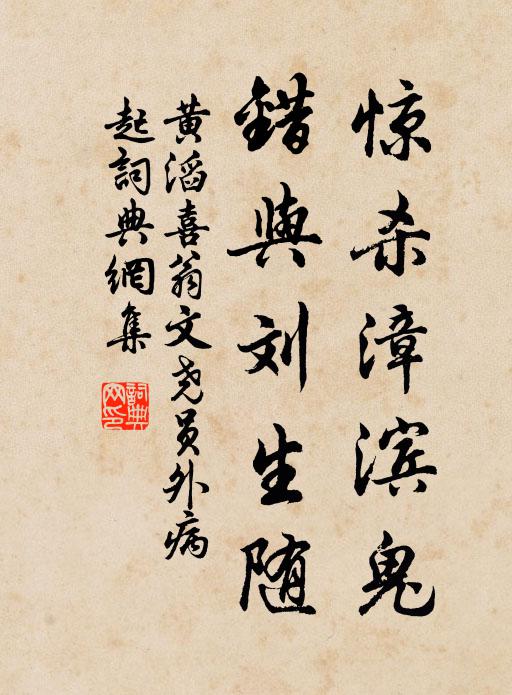 惊杀漳滨鬼
錯與刘生随
黄滔喜翁文尧员外病
起詞典網集
詞典网印